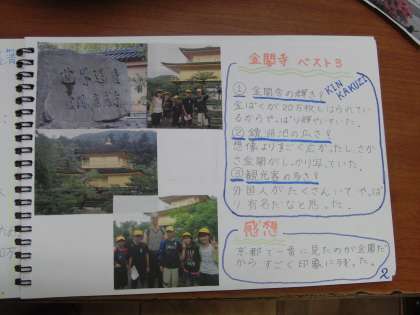 金閣寺 ベスト3
KIN KAKUZI
① 金閣寺の輝き?
金ぱくが20万枚もはられて
いるからやっぱり輝やいていた。
② 鏡胡池の広さ?
想像よりすごく広かったし、さか
さ金閣がしっかり写っていた。
③ 観光客の多さ?
外国人がたくさんいてやっぱ
り有名だなと思った。
感想
京都で一番に見たのが金閣だ
からすごく印象に残った。
2